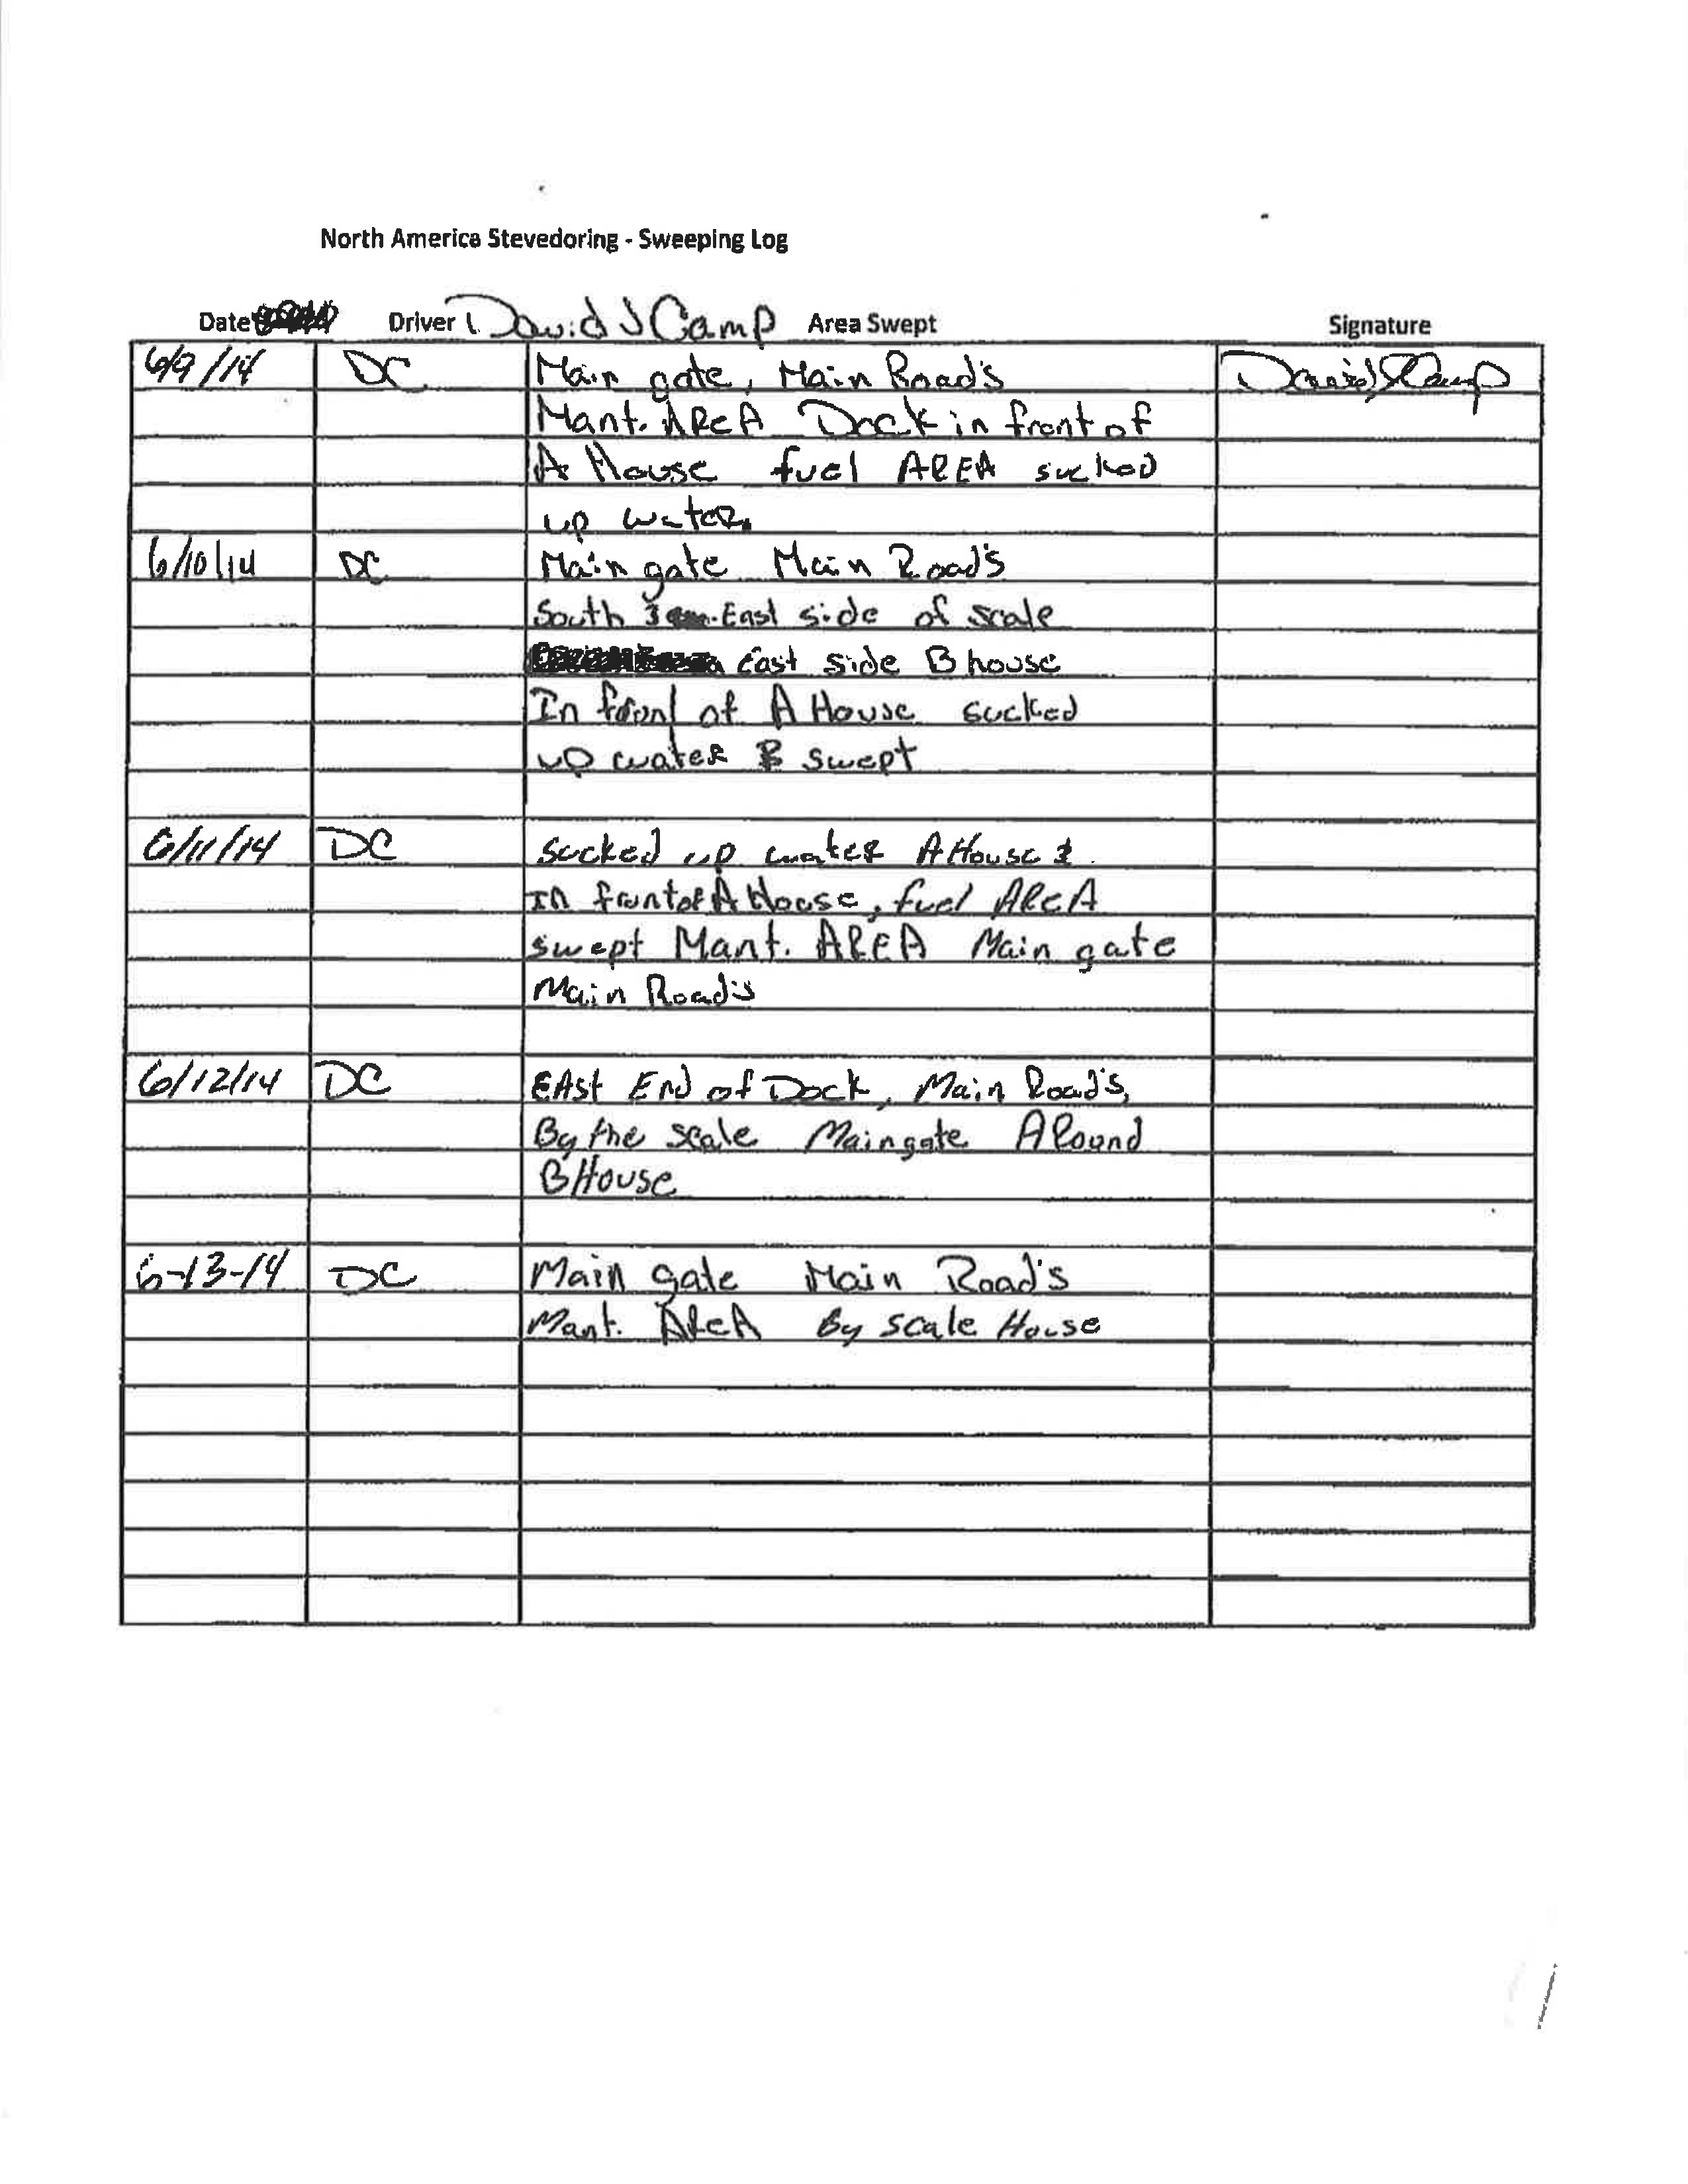 North America Stevedoring - Sweeping Log
Date Driver David J Camp Area Swept Signature
6/9/14 DC Main gate, Main Road's David J Camp
Mant. AReA Dock in front of
A House fuel AREA sucked
up water.
6/10/14 DC Main gate Main Road's
South East side of scale
East side B house
In front of A House sucked
up water & swept
6/11/14 DC sucked up water A House &
In front of A House, fuel AReA
swept Mant. AREA Main gate
Main Road's
6/12/14 DC EAst End of Dock, Main Road's,
By the scale Main gate ARound
B House
6-13-14 DC Main gate Main Road's
Mant. AReA By scale House